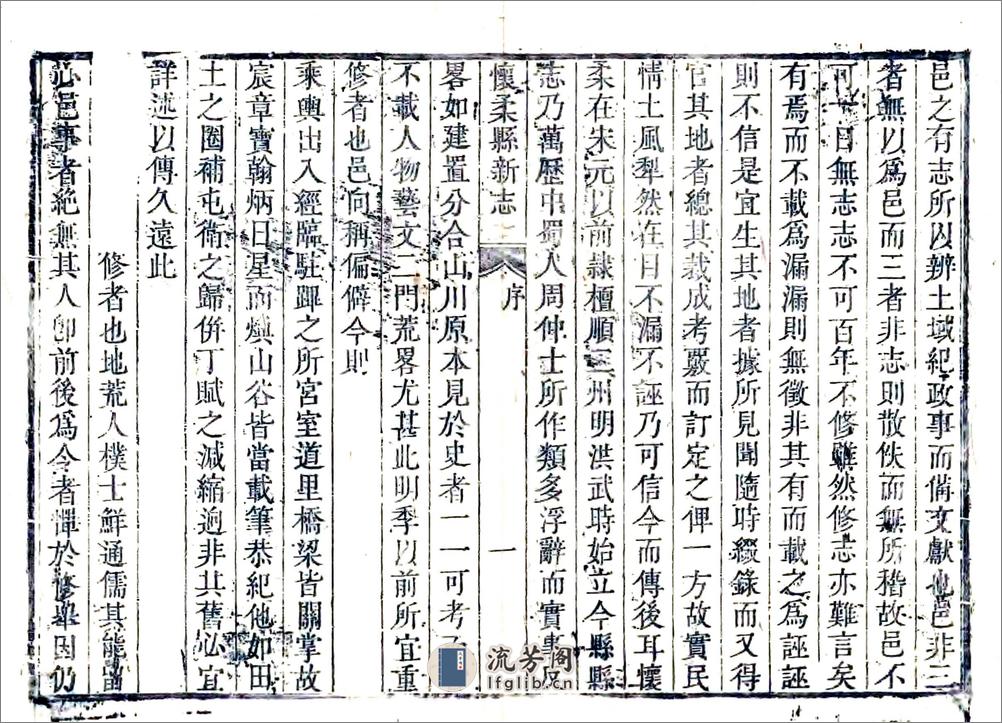 邑之有志所以辨土域紀政事而備文獻也邑非三
者無以爲邑而三者非志則散佚而無所稽故邑不
可一日無志志不可百年不修雖然修志亦難言矣
有焉而不載爲漏漏則無徵非其有而載之爲誣誣
則不信是宜生其地者據所見聞隨時綴錄而又得
官其地者總其裁成考覈而訂定之俾一方故實民
情土風犁然在目不漏不誣乃可信今而傳後耳懷
柔在宋元以前隷檀順三州明洪武時始立今縣縣
志乃萬歷中蜀人周仲士所作類多浮辭而實事
懷柔縣新志 序 一
畧如建置分合山川原本見於史者一一可考
不載人物藝文二門荒畧尤甚此明季以前所宜重
修者也邑向稱偏僻今則
乘輿出入經臨駐蹕之所宮室道里橋梁皆關掌故
宸章寶翰炳日星而燠山谷皆當載筆恭紀他如田
土之圈補屯衛之歸併丁賦之減縮逈非其舊必宜
詳述以傳久遠此
修者也地荒人樸士鮮通儒其能畱
心邑事者絶無其人卽前後爲令者憚於修舉因仍
流芳閣
lfglib.cn